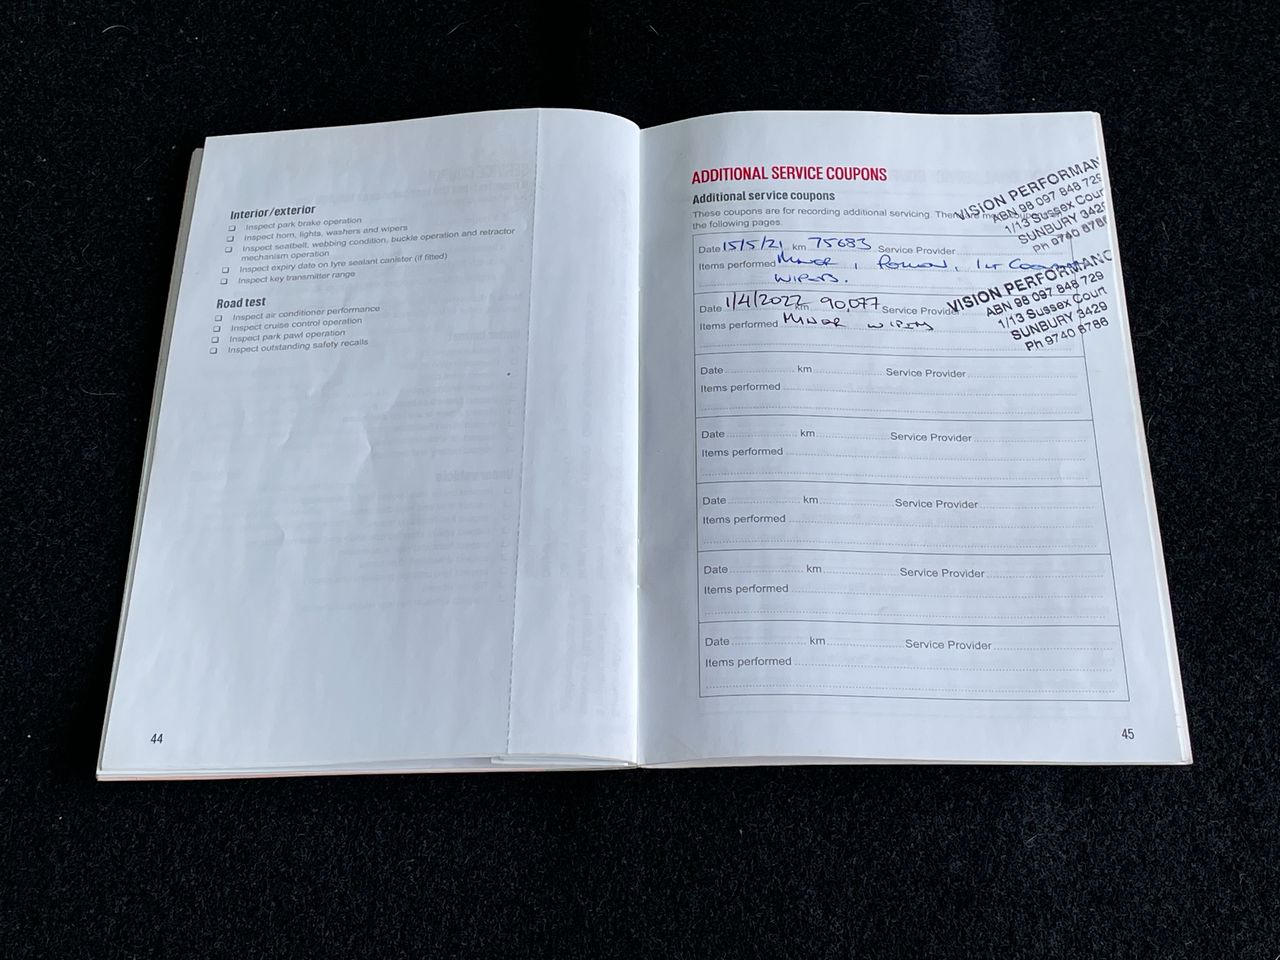 Interior/exterior
❏ Inspect park brake operation
❏ Inspect horn, lights, washers and wipers
❏ Inspect seatbelt, webbing condition, buckle operation and retractor
mechanism operation
❏ Inspect expiry date on tyre sealant canister (if fitted)
❏ Inspect key transmitter range
Road test
❏ Inspect air conditioner performance
❏ Inspect cruise control operation
❏ Inspect park pawl operation
❏ Inspect outstanding safety recalls
44
ADDITIONAL SERVICE COUPONS
Additional service coupons
These coupons are for recording additional servicing. There are more
the following pages.
VISION PERFORMAN
ABN 98 097 848 729
1/13 Sussex Cour
SUNBURY 3429
Ph 9740 8788
Date 15/5/21 km 75683 Service Provider
Items performed MINOR, POLLEN,
WIPERS.
VISION PERFORMANC
ABN 98 097 848 729
1/13 Sussex Court
SUNBURY 3429
Ph 9740 8788
Date 1/4/2022 km 90,077 Service Provider
Items performed MINOR WIPERS
Date km Service Provider
Items performed
Date km Service Provider
Items performed
Date km Service Provider
Items performed
Date km Service Provider
Items performed
Date km Service Provider
Items performed
45